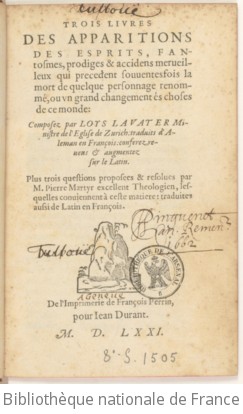 TROIS LIVRES
DES APPARITIONS
DES ESPRITS, FAN-
tosmes, prodiges & accidens merueil-
leux qui precedent souuentesfois la
mort de quelque personnage renom-
mé, ou vn grand changement és choses
de ce monde:
Composez par LOYS LAVATER Mi-
nistre de l'Eglise de Zurich, traduits d'A-
leman en François, conferez, re-
ueus & augmentez
sur le Latin.
Plus trois questions proposees & resolues par
M. Pierre Martyr excellent Theologien, les-
quelles conuiennent à ceste matiere: traduites
aussi de Latin en François.
1662
A Geneue
BIBLIOTHEQUE DE L'ARSENAL
De l'Imprimerie de François Perrin,
pour Iean Durant.
M. D. LXXI.
8° S. 1505
Bibliothèque nationale de France